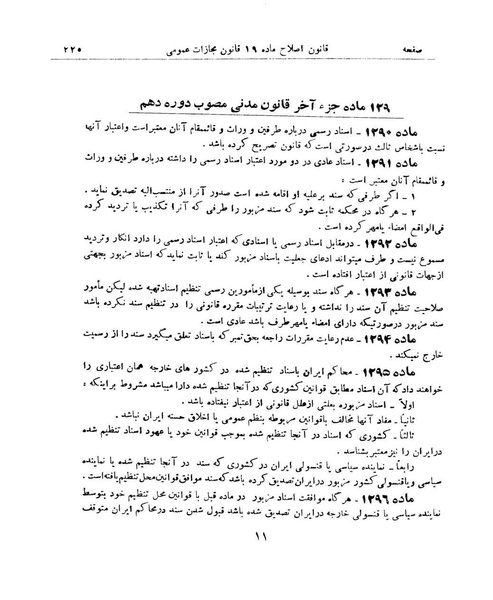 صفحه قانون اصلاح ماده ۱۹ قانون مجازات عمومی ۲۲۵
۱۲۹ ماده جزء آخر قانون مدنی مصوب دوره دهم
ماده ۱۲۹۰ - اسناد رسمی درباره طرفین و وراث و قائممقام آنان معتبر است واعتبار آنها
نسبت باشخاص ثالث درصورتی است که قانون تصریح کرده باشد.
ماده ۱۲۹۱ - اسناد عادی در دو مورد اعتبار اسناد رسمی را داشته درباره طرفین و وراث
و قائممقام آنان معتبر است :
۱ - اگر طرفی که سند برعلیه او اقامه شده است صدور آنرا از منتسب‌الیه تصدیق نماید .
۲ - هر گاه در محکمه ثابت شود که سند مزبور را طرفی که آنرا تکذیب یا تردید کرده
فی‌الواقع امضاء یامهر کرده است .
ماده ۱۲۹۲ - درمقابل اسناد رسمی یا اسنادی که اعتبار اسناد رسمی را دارد انکار وتردید
مسموع نیست و طرف میتواند ادعای جعلیت باسناد مزبور کند یا ثابت نماید که اسناد مزبور بجهتی
ازجهات قانونی از اعتبار افتاده است .
ماده ۱۲۹۳ - هر گاه سند بوسیله یکی ازمأمورین رسمی تنظیم اسناد تهیه شده لیکن مأمور
صلاحیت تنظیم آن سند را نداشته و یا رعایت ترتیبات مقرره قانونی را در تنظیم سند نکرده باشد
سند مزبور درصورتیکه دارای امضاء یامهر طرف باشد عادی است .
ماده ۱۲۹۴ - عدم رعایت مقررات راجعه بحق تمبر که باسناد تعلق میگیرد سند را از رسمیت
خارج نمیکند.
ماده ۱۲۹۵ - محاکم ایران باسناد تنظیم شده در کشور های خارجه همان اعتباری را
خواهند داد که آن اسناد مطابق قوانین کشوری که در آنجا تنظیم شده دارا میباشد مشروط براینکه :
اولاً - اسناد مزبوره بعلتی ازعلل قانونی از اعتبار نیفتاده باشد.
ثانیاً - مفاد آنها مخالف باقوانین مربوطه بنظم عمومی یا اخلاق حسنه ایران نباشد.
ثالثاً - کشوری که اسناد در آنجا تنظیم شده بموجب قوانین خود یا عهود اسناد تنظیم شده
درایران را نیز معتبر بشناسد .
رابعاً - نماینده سیاسی یا قنسولی ایران در کشوری که سند در آنجا تنظیم شده یا نماینده
سیاسی ویاقنسولی کشور مزبور درایران تصدیق کرده باشد که سند موافق قوانین محل تنظیم یافته است.
ماده ۱۲۹۶ - هر گاه موافقت اسناد مزبور در ماده قبل با قوانین محل تنظیم خود بتوسط
نماینده سیاسی یا قنسولی خارجه درایران تصدیق شده باشد قبول شدن سند درمحاکم ایران متوقف
۱۱